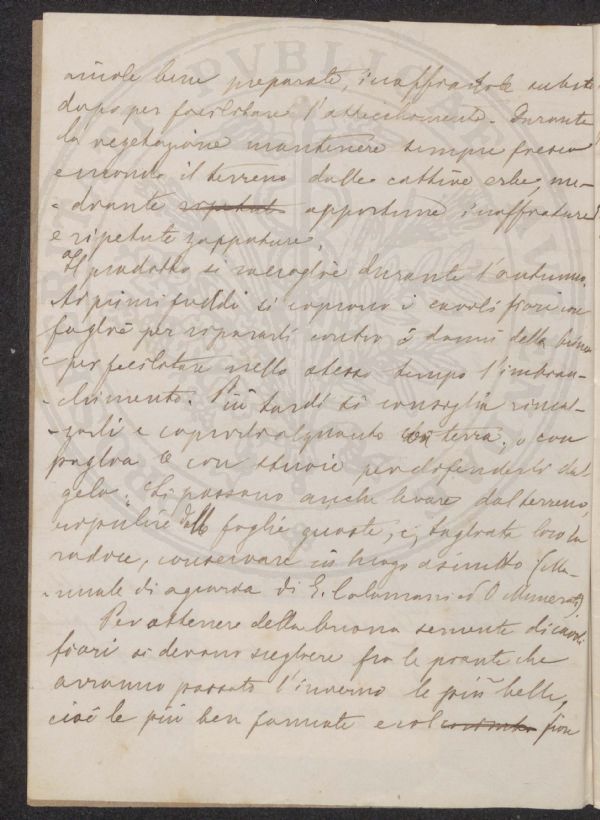 aiuole bene preparate, inaffiandole subito
dopo per facilitare l'attecchimento. Durante
la vegetazione mantenere sempre fresco
e mondo il terreno dalle cattive erbe, me-
-diante opportune inaffiature
e ripetute zappature.
Il prodotto si raccoglie durante l'autunno.
Ai primi freddi si coprono i cavoli fiori con
foglie per ripararli contro i danni della brina
e per facilitare nello stesso tempo l'imbian-
-chimento. Più tardi si consiglia rincal-
-zarli e coprirli alquanto con terra, o con
paglia o con stuoie per difenderli dal
gelo. Si possono anche levare dal terreno,
ripulire delle foglie guaste, e, tagliata loro la
radice, conservare in luogo asciutto (Ma-
-nuale di agraria di E. Calamani ed O Munerati)
Per ottenere della buona semente di cavoli
fiori si devono scegliere fra le piante che
avranno passato l'inverno le più belle,
cioè le più ben formate e col fiore
PVBLICAE